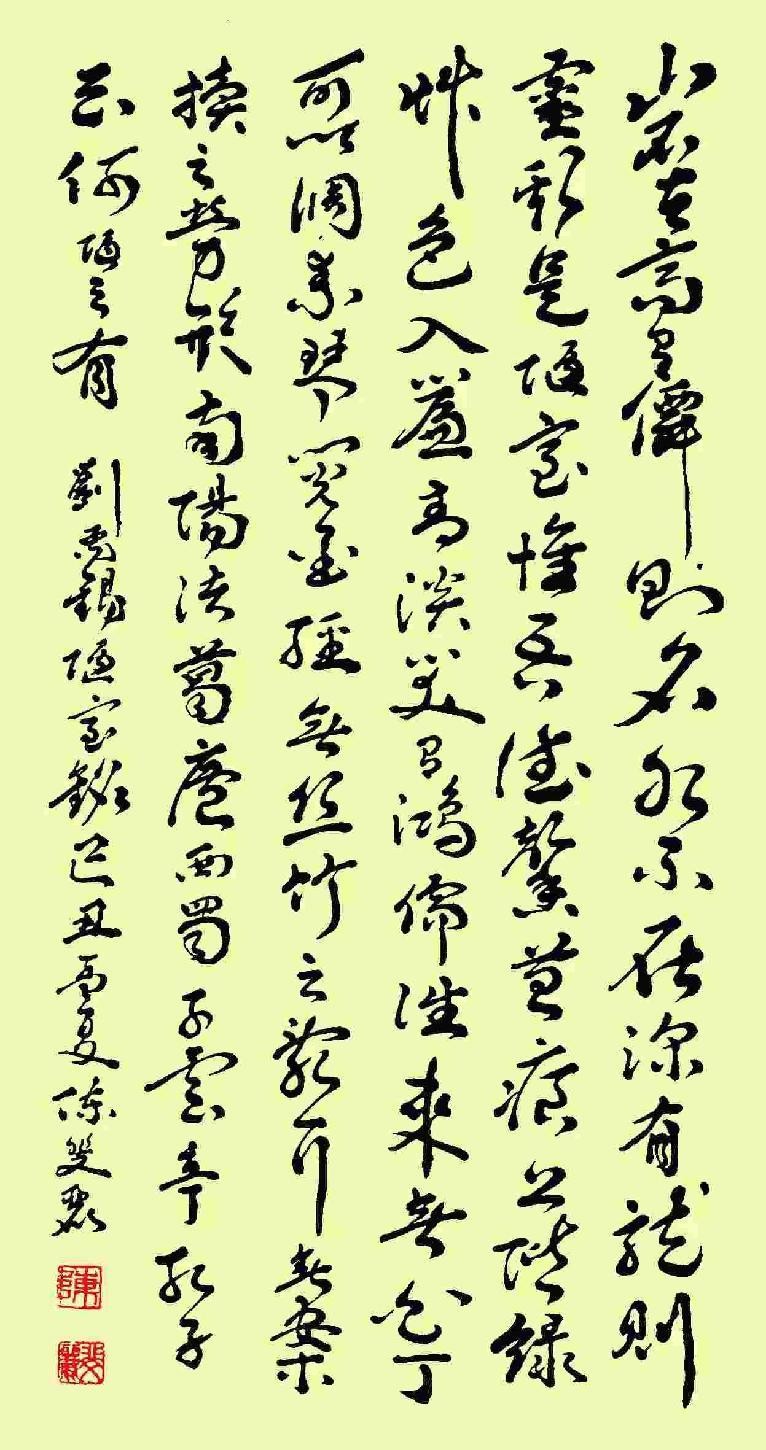 山不在高有僊則名水不在深有龍則
靈斯是陋室惟吾德馨苔痕上階綠
艸色入簾青談笑有鴻儒往來無白丁
可以調素琴閱金經無絲竹之亂耳無案
牘之勞形南陽諸葛廬西蜀子雲亭孔子
云何陋之有 劉禹錫陋室銘己丑夏陳斐
陳